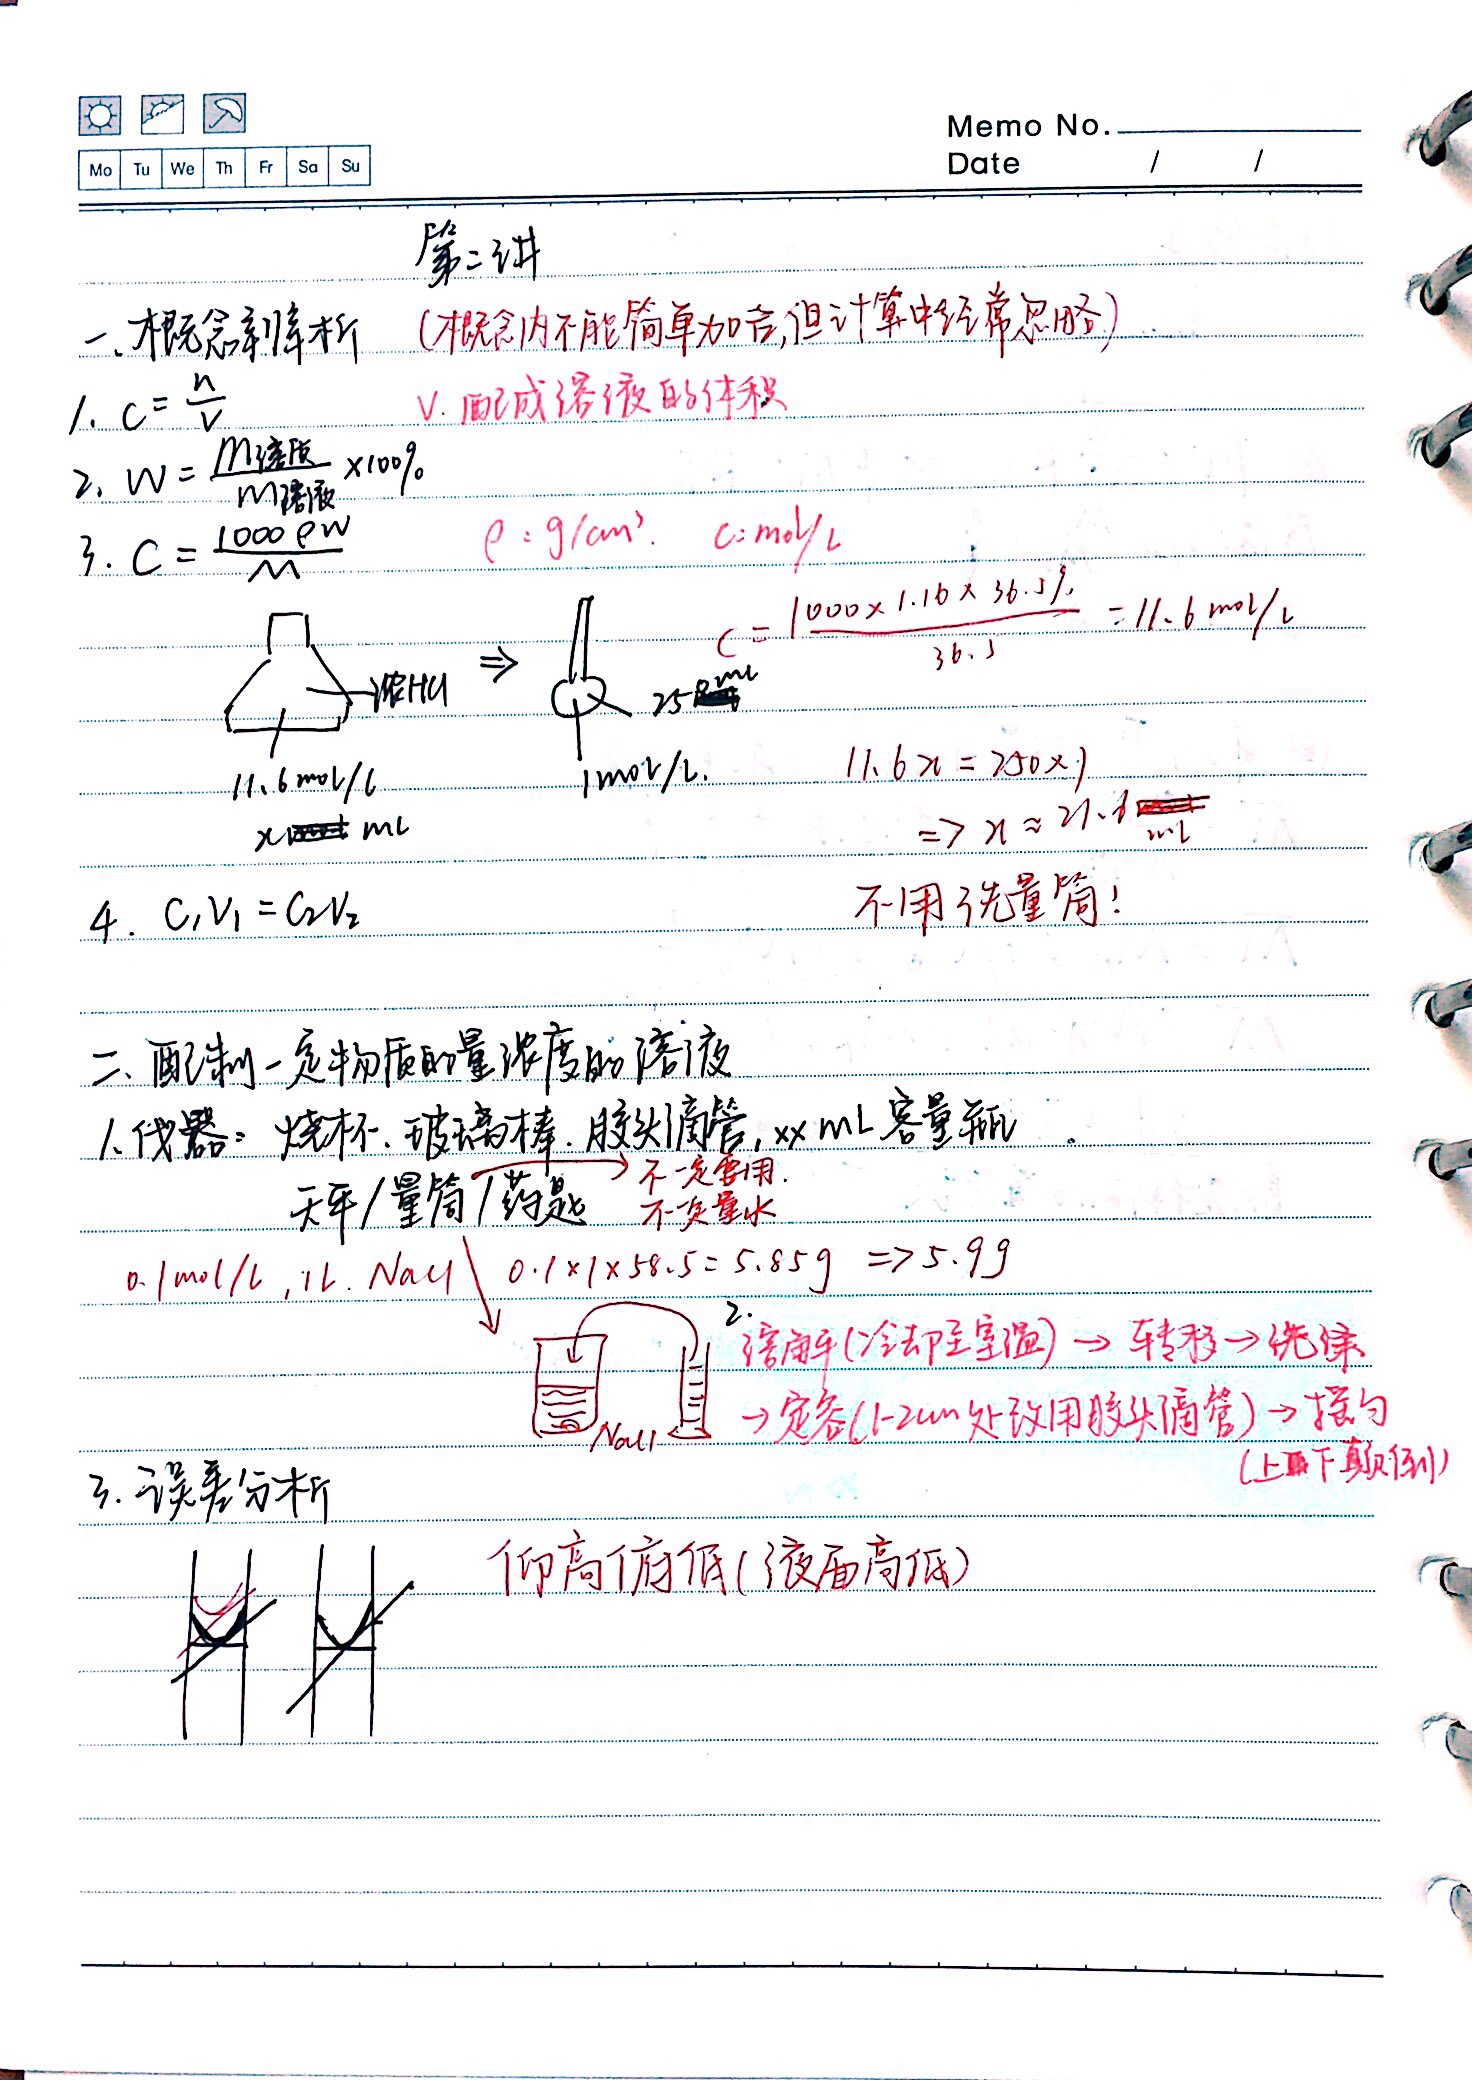 Memo No.
Mo Tu We Th Fr Sa Su
Date / /
第二讲
一、概念剖析 (概念内不能简单加合,但计算中经常忽略)
1. C = n/V V. 配成溶液的体积
2. W = m溶质/m溶液 ×100%
3. C = 1000ρW/M ρ: g/cm³. C: mol/L
C = 1000×1.16×36.5%/36.5 = 11.6 mol/L
浓HCl ⇒ 250 mL
11.6mol/L 1mol/L.
x mL
11.6x = 250×1
=> x ≈ 21.6 mL
4. C₁V₁ = C₂V₂ 不用洗量筒!
二、配制一定物质的量浓度的溶液
1. 仪器: 烧杯、玻璃棒、胶头滴管, xx mL容量瓶
天平/量筒/药匙 不一定要用.
不一定量水
0.1mol/L, 1L. NaCl 0.1×1×58.5=5.85g => 5.9g
2. 溶解(冷却至室温)→转移→洗涤
→定容(1-2cm处改用胶头滴管)→摇匀
NaCl
(上下颠倒)
3. 误差分析
仰高俯低(液面高低)